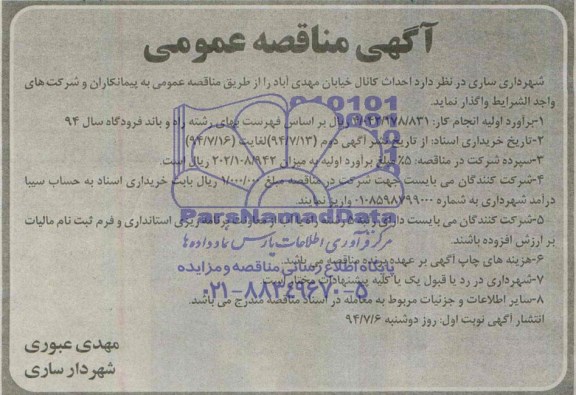 آگهی مناقصه عمومی
شهرداری ساری در نظر دارد احداث کانال خیابان مهدی آباد را از طریق مناقصه عمومی به پیمانکاران و شرکت های
واجد الشرایط واگذار نماید.
۱-برآورد اولیه انجام کار: ریال بر اساس فهرست بهای رشته راه و باند فرودگاه سال ۹۴
۲-تاریخ خریداری اسناد: از تاریخ نشر آگهی دوم (۹۴/۷/۱۳) لغایت (۹۴/۷/۱۶)
۳-سپرده شرکت در مناقصه: ۵٪ مبلغ برآورد اولیه به میزان ۲۰۲/۱۰۸/۹۴۲ ریال است.
۴-شرکت کنندگان می بایست جهت شرکت در مناقصه مبلغ ۱/۰۰۰/۰۰۰ ریال بابت خریداری اسناد به حساب سیبا
درآمد شهرداری به شماره ۰۱۰۸۵۹۸۷۹۹۰۰۰ واریز نمایند.
۵-شرکت کنندگان می بایست دارای رتبه برنامه ریزی استانداری و فرم ثبت نام مالیات
بر ارزش افزوده باشند.
۶-هزینه های چاپ آگهی بر عهده برنده مناقصه می باشد.
۷-شهرداری در رد یا قبول یک یا کلیه پیشنهادات مختار است.
۸-سایر اطلاعات و جزئیات مربوط به معامله در اسناد مناقصه مندرج می باشد.
انتشار آگهی نوبت اول: روز دوشنبه ۹۴/۷/۶
مهدی عبوری
شهردار ساری
ParsNamadData
مرکز فرآوری اطلاعات پارس نماد داده ها
پایگاه اطلاع رسانی مناقصه و مزایده
۰۲۱-۸۸۳۴۹۶۷۰-۵